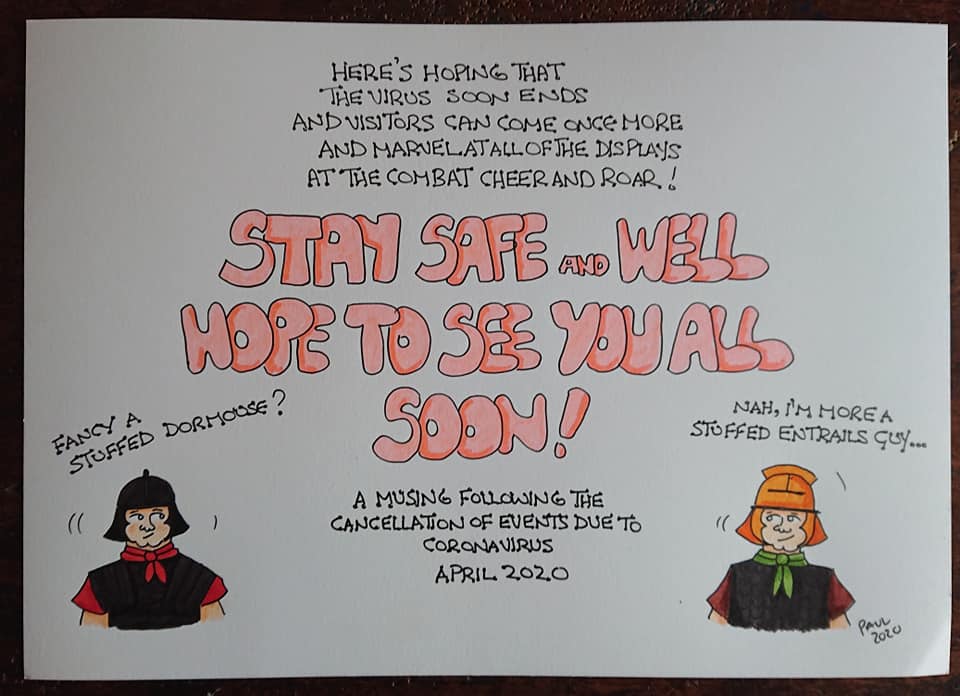 HERE'S HOPING THAT
THE VIRUS SOON ENDS
AND VISITORS CAN COME ONCE MORE
AND MARVEL AT ALL OF THE DISPLAYS
AT THE COMBAT CHEER AND ROAR!
STAY SAFE AND WELL
HOPE TO SEE YOU ALL
SOON!
FANCY A
STUFFED DORMOUSE?
NAH, I'M MORE A
STUFFED ENTRAILS GUY...
A MUSING FOLLOWING THE
CANCELLATION OF EVENTS DUE TO
CORONAVIRUS
APRIL 2020
PAUL
2020